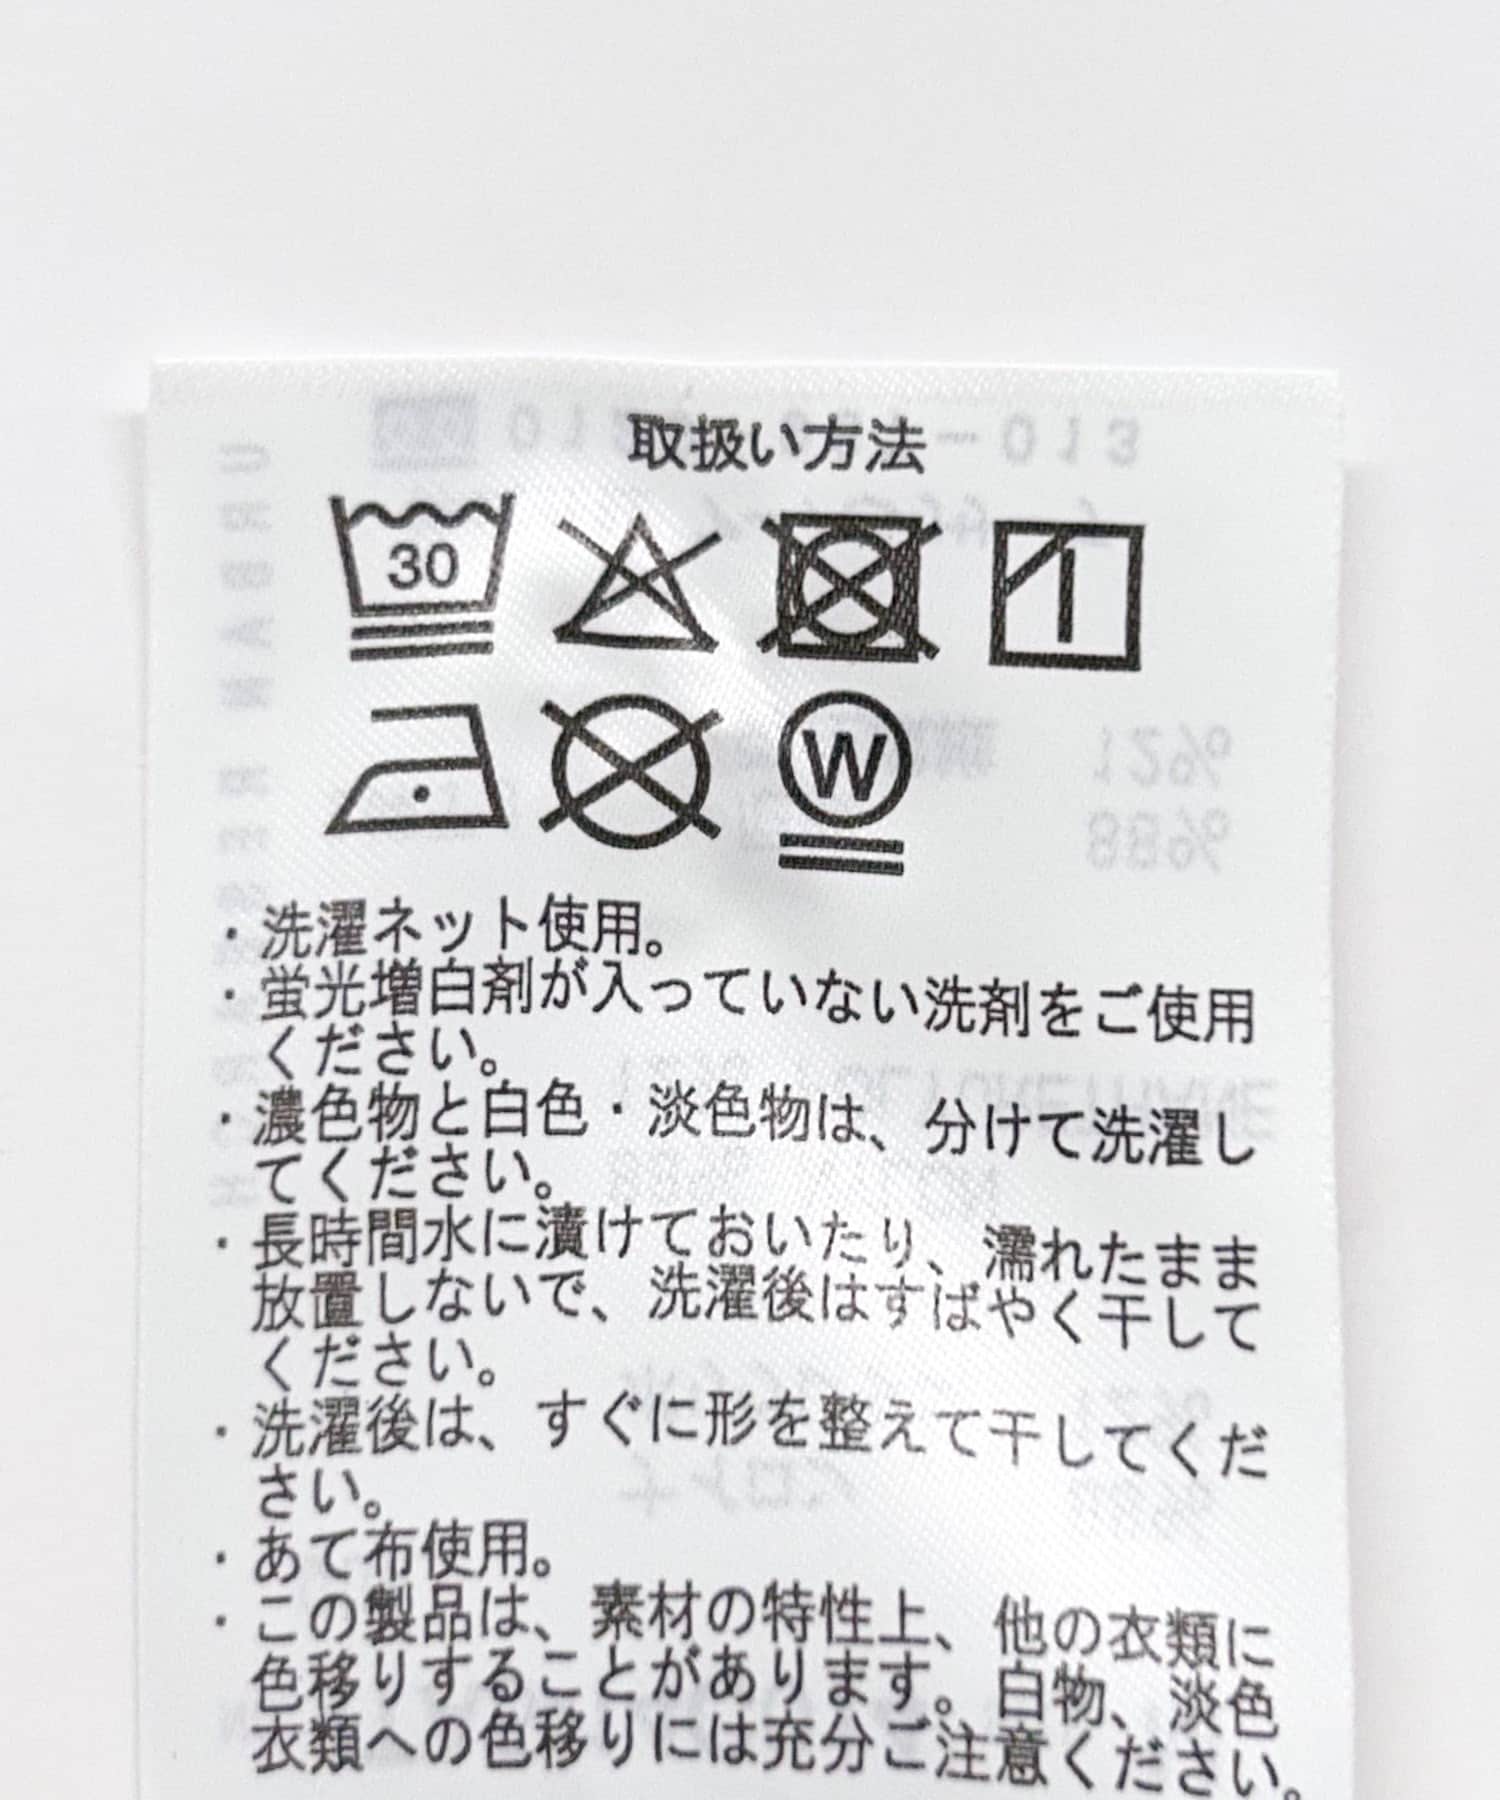 取扱い方法
30
W
・洗濯ネット使用。
・蛍光増白剤が入っていない洗剤をご使用
ください。
・濃色物と白色・淡色物は、分けて洗濯し
てください。
・長時間水に漬けておいたり、濡れたまま
放置しないで、洗濯後はすばやく干して
ください。
・洗濯後は、すぐに形を整えて干してくだ
さい。
・あて布使用。
・この製品は、素材の特性上、他の衣類に
色移りすることがあります。白物、淡色
衣類への色移りには充分ご注意ください。